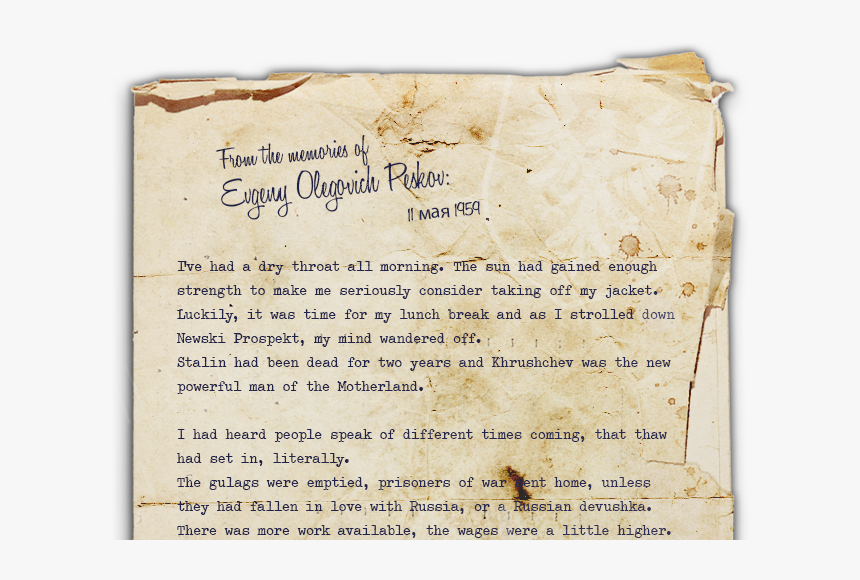 From the memories of
Evgeny Olegovich Peskov:
11 мая 1959
I've had a dry throat all morning. The sun had gained enough
strength to make me seriously consider taking off my jacket.
Luckily, it was time for my lunch break and as I strolled down
Newski Prospekt, my mind wandered off.
Stalin had been dead for two years and Khrushchev was the new
powerful man of the Motherland.
I had heard people speak of different times coming, that thaw
had set in, literally.
The gulags were emptied, prisoners of war sent home, unless
they had fallen in love with Russia, or a Russian devushka.
There was more work available, the wages were a little higher.